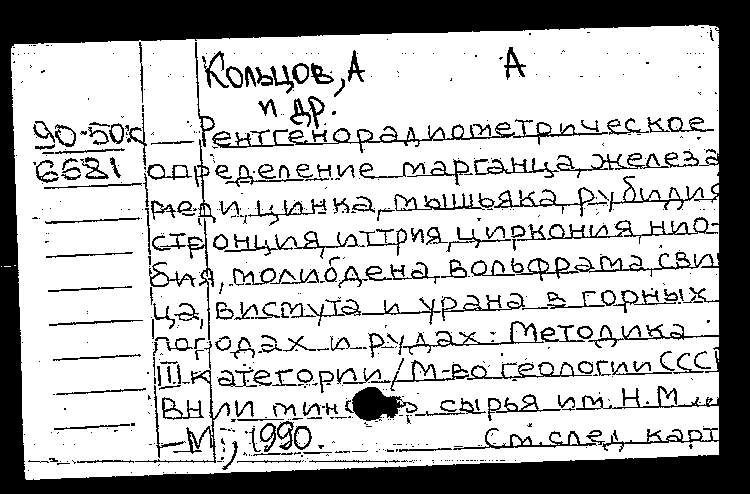 Кольцов, А
А
и др.
90-50к Рентгенорадиометрическое
6681 определение марганца, железа
меди, цинка, мышьяка, рубидия
стронция, иттрия, циркония, нио-
бия, молибдена, вольфрама, свин
ца, висмута и урана в горных
породах и рудах: Методика
III категории / М-во геологии СССР
ВНИИ мин р. сырья им. Н.М...
—М., 1990. См. след. карт